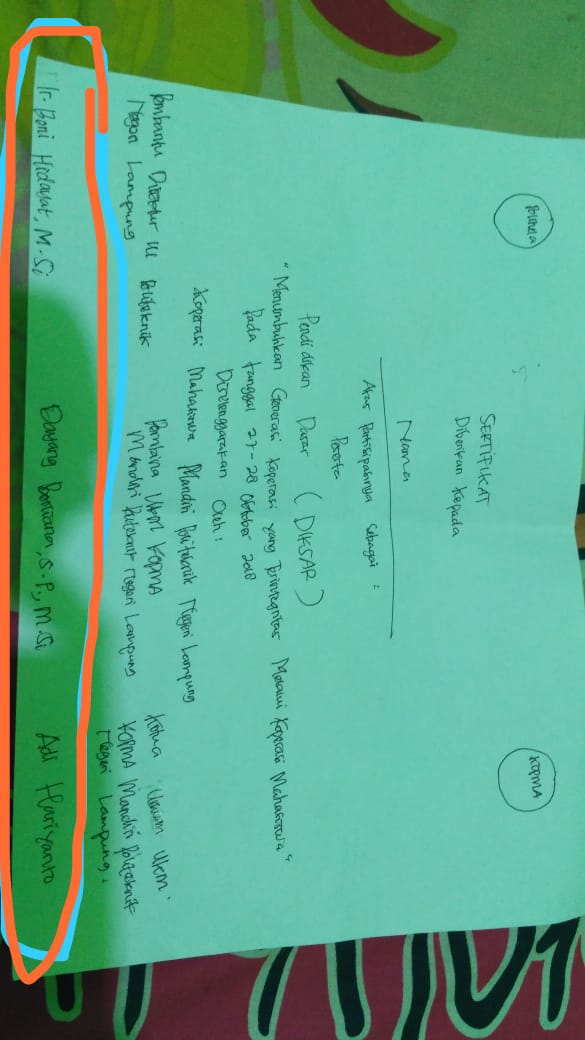 Polinela
KOPMA
SERTIFIKAT
Diberikan Kepada
Nama
Atas Partisipasinya Sebagai :
Peserta
Pendidikan Dasar (DIKSAR)
"Menumbuhkan Generasi Koperasi yang Terintegritas Melalui Koperasi Mahasiswa"
Pada tanggal 27-28 Oktober 2018
Diselenggarakan Oleh :
Koperasi Mahasiswa Mandiri Politeknik Negeri Lampung
Pembantu Direktur III Politeknik
Negeri Lampung
Pembina UKM KOPMA
Mandiri Politeknik Negeri Lampung
Ketua Umum UKM.
KOPMA Mandiri Politeknik
Negeri Lampung.
Ir. Beni Hidayat, M.Si
Dayang Berliana, S.P., M.Si
Adi Hariyanto